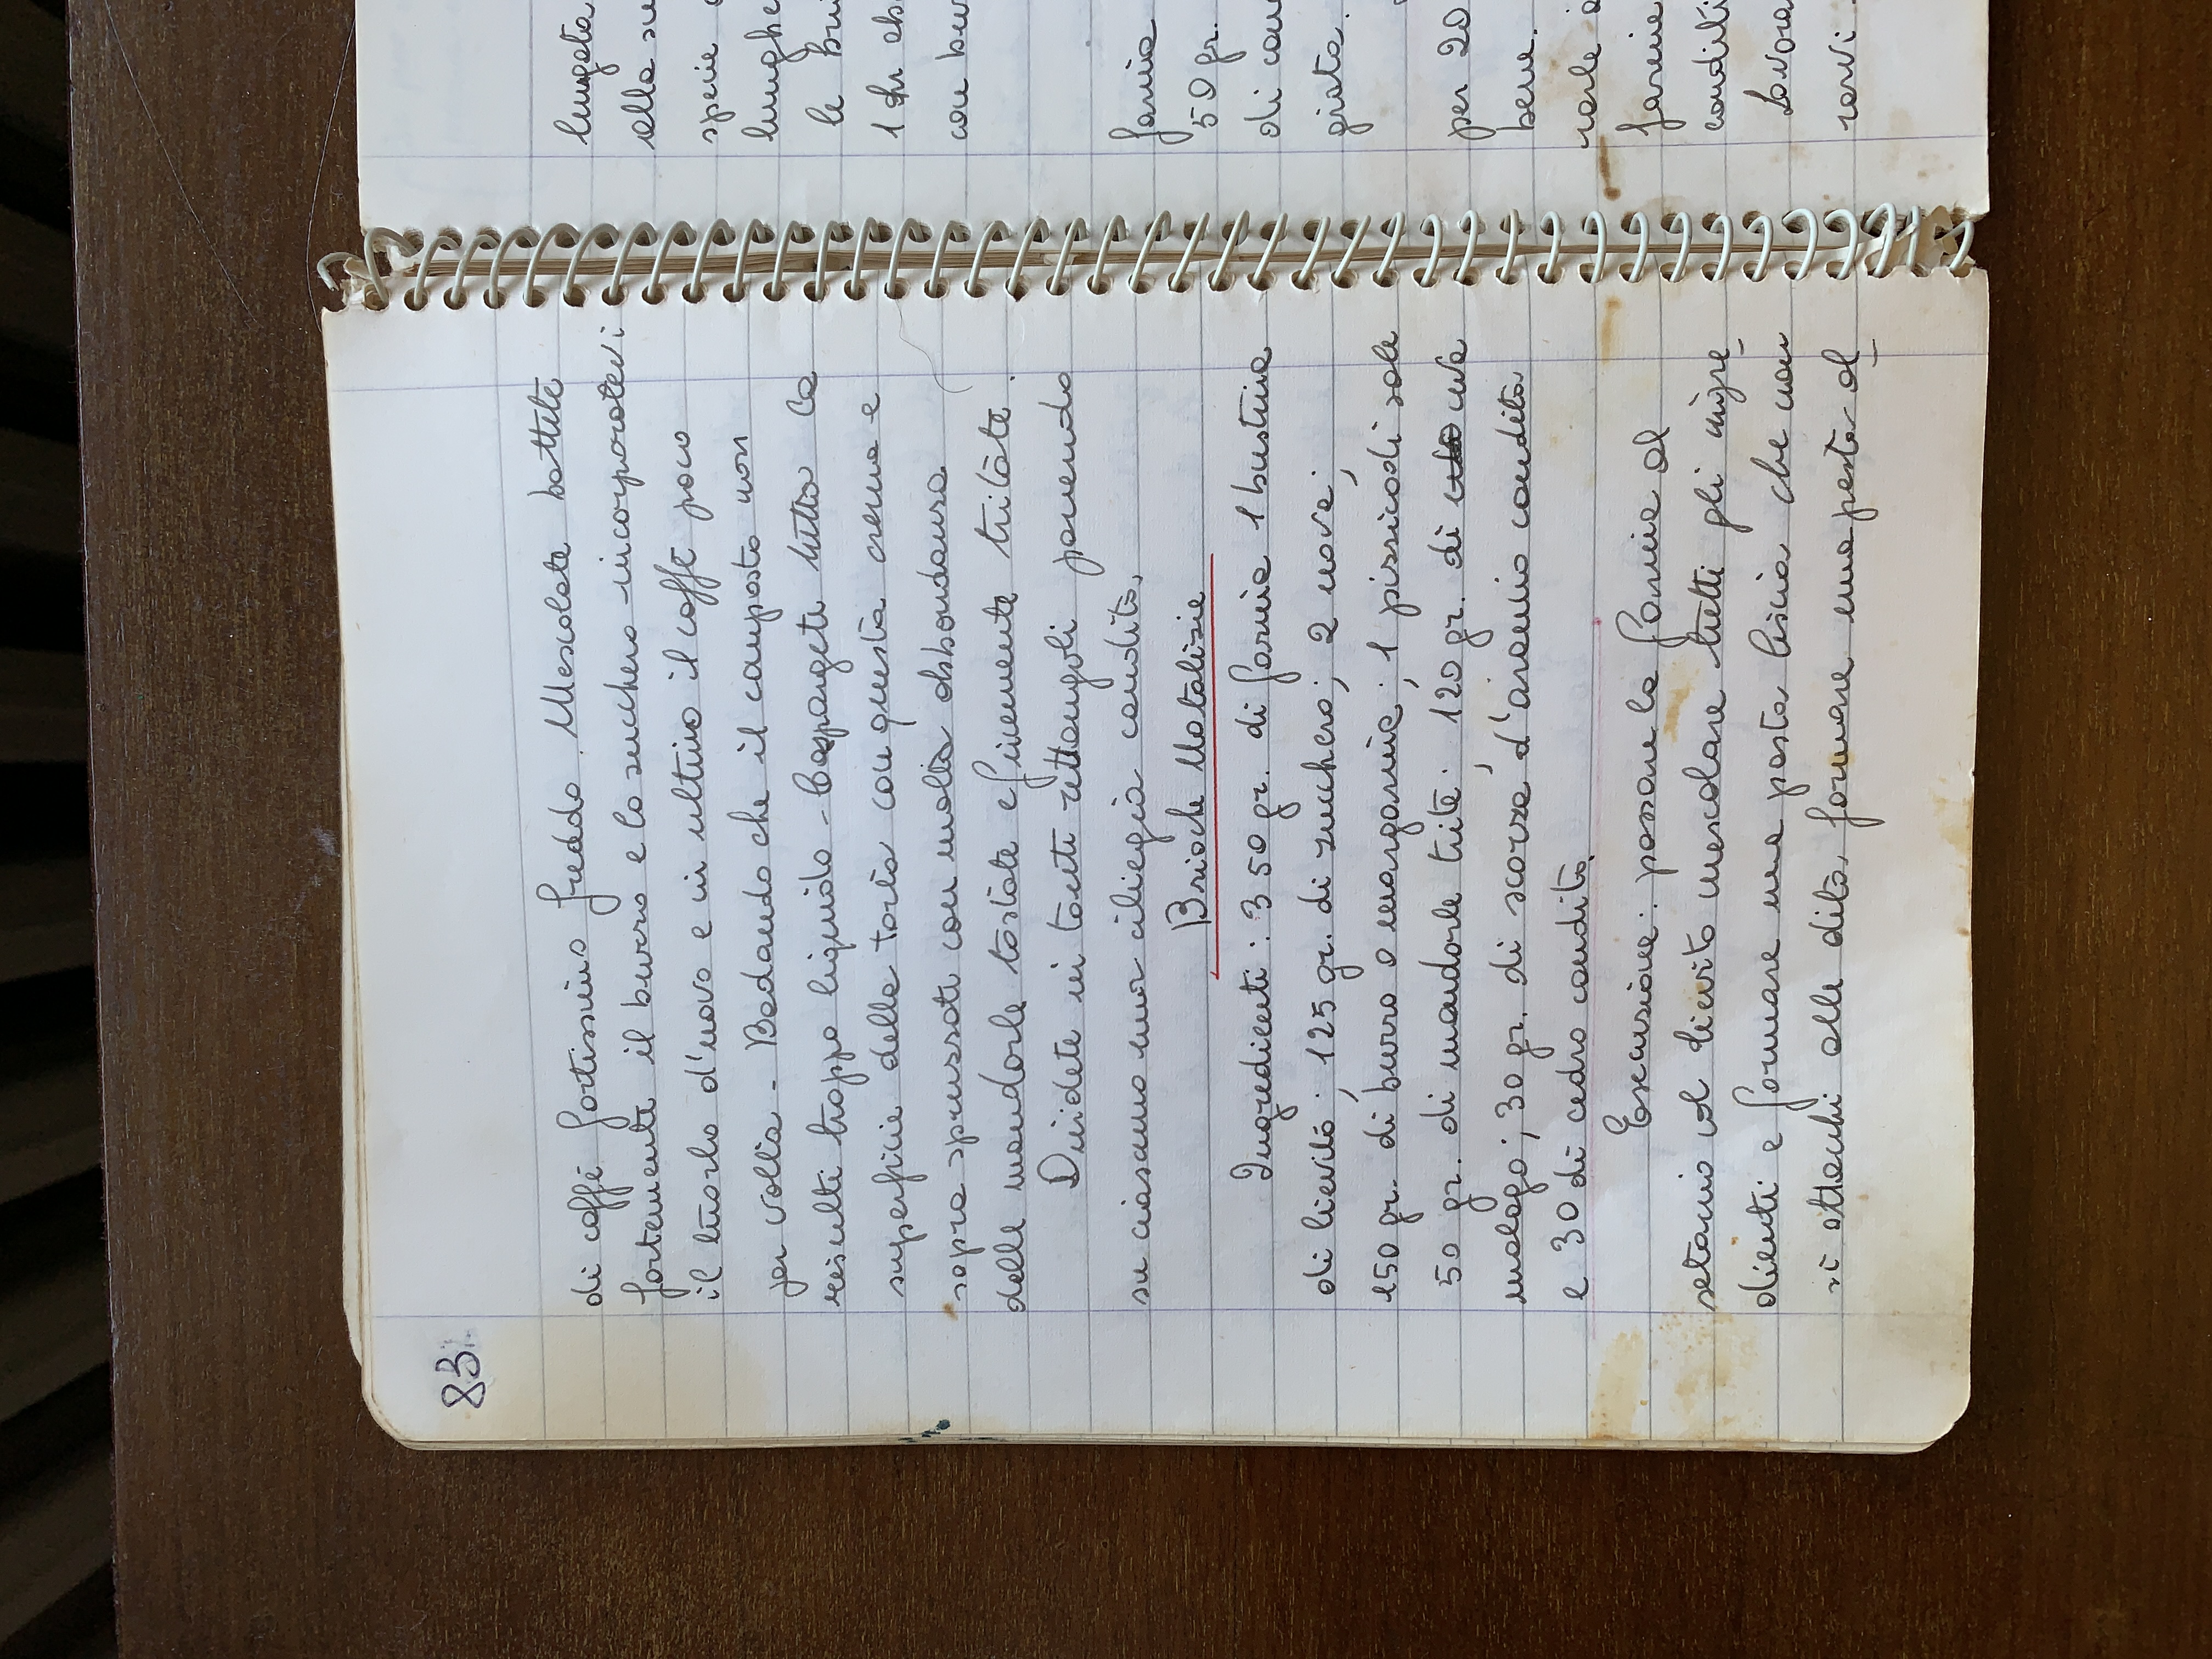 83
di caffé fortissimo freddo. Mescolate battete
fortemente il burro e lo zucchero incorporatevi
il tuorlo d'uovo e in ultimo il caffé poco
per volta - Badando che il composto non
risulti troppo liquido - Cospargete tutta la
superficie della torta con questa crema e
sopra spruzzate con molta abbondanza
delle mandorle tostate e finemente tritate.
Dividete in tanti rettangoli ponendo
su ciascuno una ciliegia candita.
Brioche Natalizie
Ingredienti: 350 gr. di farina 1 bustina
di lievito; 125 gr. di zucchero; 2 uova;
150 gr. di burro o margarina; 1 pizzico di sale
50 gr. di mandorle trite; 120 gr. di uva
malaga; 30 gr. di scorza d'arancio candita
e 30 di cedro candito.
Esecuzione: passare la farina al
setaccio col lievito mescolare tutti gli ingre
dienti e formare una pasta liscia che non
si attacchi alle dita, formare una pasta al
lungata
alla
specie
lunghe
le
1 hr
con
farina
50 gr.
di
giata.
per 20
bene.
farina
canditi
Lavora